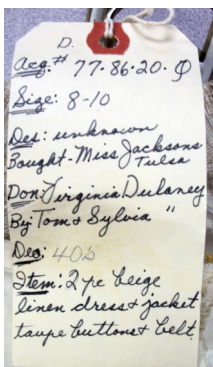 D.
Acq.# 77.86.20.Q
Size: 8-10
Des: unknown
Bought-Miss Jacksons
Tulsa
Don: Virginia Dulaney
By: Tom & Sylvia "
Dec: 40s
Item: 2 pc beige
linen dress & jacket
taupe buttons & belt.